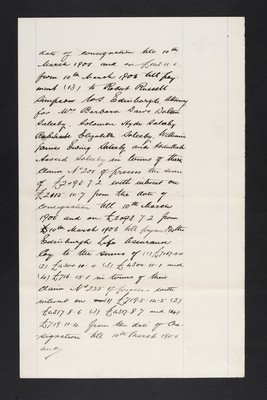 date of consignation till 10th
March 1906 and on £
from 10th March 1906 till pay-
ment (13) to Robert Russell
Simpson W.S. Edinburgh Attorney
for Mrs Barbara Daws Dalton
Saleeby Solomon Hyde Saleeby
Elizabeth Saleeby William
James Ewing Saleeby and
Saleeby in terms of their
Claim No 201 of process the sum
of £2098.7.2 with interest on
from the date of
consignation till 10th March
1906 and on £2098.7.2 from
10th March 1906 till payment
Edinburgh Life Assurance
Coy to the sums of (1)
(2) £4300.10.11 (3) £4300.11.1 and
(4) £716.15.1 in terms of their
Claim No 225 of process with
interest on (1) £7195.12.5 (2)
£4317.8.6 (3) £4317.8.7 and (4)
£719.11.4 from the date of Con-
signation till 10th March 1906
and